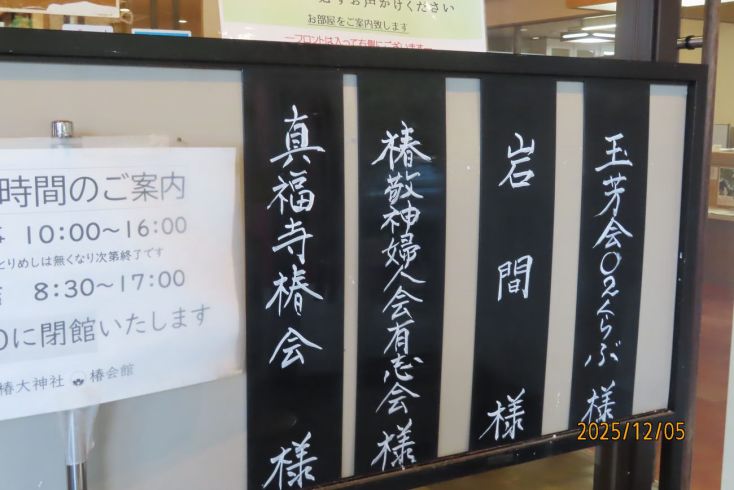 必ずお声かけください
お部屋をご案内致します
―フロントは入って右側にございます―
玉芳会〇2くらぶ 様
岩間 様
椿敬神婦人会有志会 様
真福寺椿会 様
時間のご案内
10:00～16:00
とりめしは無くなり次第終了です
8:30～17:00
0に閉館いたします
椿大神社 椿会館
2025/12/05